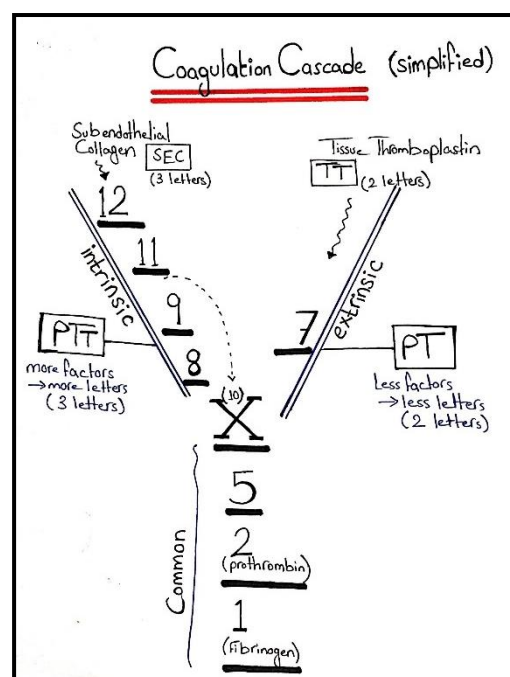 Coagulation Cascade (simplified)
Subendothelial
Collagen SEC
(3 letters)
Tissue Thromboplastin
TT (2 letters)
12
11
9
8
intrinsic
PTT
more factors
→more letters
(3 letters)
7
extrinsic
PT
Less factors
→less letters
(2 letters)
(10)
X
5
2
(prothrombin)
1
(Fibrinogen)
Common